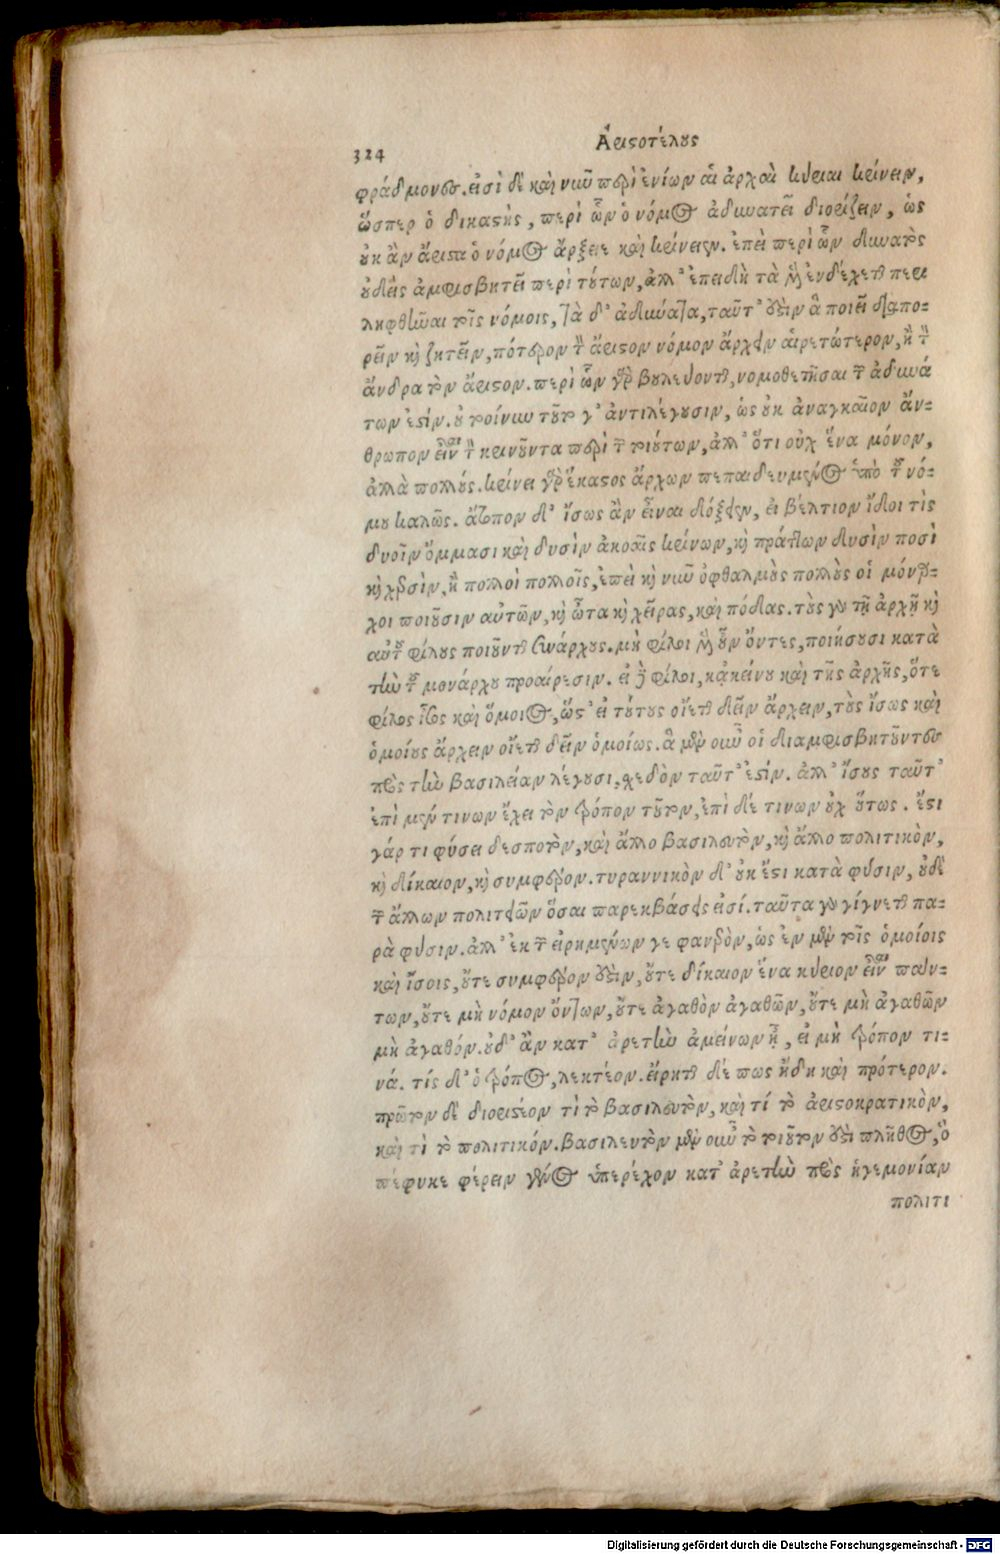 324
Ἀριστοτέλους
φράδμονες. εἰσὶ δὲ καὶ νῦν περὶ ἐνίων αἱ ἀρχαὶ κύριαι κρίνειν,
ὥσπερ ὁ δικαστής, περὶ ὧν ὁ νόμος ἀδυνατεῖ διορίζειν, ὡς
οὐκ ἂν ἄριστα ὁ νόμος ἄρξειε καὶ κρίνειεν. ἐπεὶ περὶ ὧν δυνατὸς
οὐδεὶς ἀμφισβητεῖ περὶ τούτων, ἀλλ' ἐπειδὴ τὰ μὲν ἐνδέχεται περι
ληφθῆναι τοῖς νόμοις, τὰ δ' ἀδύνατα, ταῦτ' ἐστὶν ἃ ποιεῖ διαπο-
ρεῖν καὶ ζητεῖν, πότερον τὸν ἄριστον νόμον ἄρχειν αἱρετώτερον, ἢ τὸν
ἄνδρα τὸν ἄριστον. περὶ ὧν γὰρ βουλεύονται, νομοθετῆσαι τῶν ἀδυνά
των ἐστίν. οὐ τοίνυν τοῦτο γ' ἀντιλέγουσιν, ὡς οὐκ ἀναγκαῖον ἄν-
θρωπον εἶναι τὸν κρινοῦντα περὶ τῶν τοιούτων, ἀλλ' ὅτι οὐχ ἕνα μόνον,
ἀλλὰ πολλούς. κρίνει γὰρ ἕκαστος ἄρχων πεπαιδευμένος ὑπὸ τοῦ νό-
μου καλῶς. ἄτοπον δ' ἴσως ἂν εἶναι δόξειεν, εἰ βέλτιον ἴδοι τὶς
δυοῖν ὄμμασι καὶ δυσὶν ἀκοαῖς κρίνων, καὶ πράττων δυσὶν ποσὶ
καὶ χερσὶν, ἢ πολλοὶ πολλοῖς, ἐπεὶ καὶ νῦν ὀφθαλμοὺς πολλοὺς οἱ μόναρ-
χοι ποιοῦσιν αὑτῶν, καὶ ὦτα καὶ χεῖρας, καὶ πόδας. τοὺς γὰρ τῇ ἀρχῇ καὶ
αὐτοῦ φίλους ποιοῦνται συνάρχους. μὴ φίλοι μὲν οὖν ὄντες, ποιήσουσι κατὰ
τὴν τοῦ μονάρχου προαίρεσιν. εἰ δὲ φίλοι, κἀκείνου καὶ τῆς ἀρχῆς, ὅτε
φίλος ἶσος καὶ ὅμοιος, ὥστ' εἰ τούτους οἴεται δεῖν ἄρχειν, τοὺς ἴσως καὶ
ὁμοίους ἄρχειν οἴεται δεῖν ὁμοίως. ἃ μὲν οὖν οἱ διαμφισβητοῦντες
πρὸς τὴν βασιλείαν λέγουσι, σχεδὸν ταῦτ' ἐστίν. ἀλλ' ἴσους ταῦτ'
ἐπὶ μέν τινων ἔχει τὸν τρόπον τοῦτον, ἐπὶ δέ τινων οὐχ οὕτως. ἔστι
γάρ τι φύσει δεσποτὸν, καὶ ἄλλο βασιλευτὸν, καὶ ἄλλο πολιτικὸν,
καὶ δίκαιον, καὶ συμφέρον. τυραννικὸν δ' οὐκ ἔστι κατὰ φύσιν, οὐδὲ
τῶν ἄλλων πολιτειῶν ὅσαι παρεκβάσεις εἰσί. ταῦτα γὰρ γίγνεται πα-
ρὰ φύσιν. ἀλλ' ἐκ τῶν εἰρημένων γε φανερὸν, ὡς ἐν μὲν τοῖς ὁμοίοις
καὶ ἴσοις, οὔτε συμφέρον ἐστὶν, οὔτε δίκαιον ἕνα κύριον εἶναι πάν-
των, οὔτε μὴ νόμον ὄντων, οὔτε ἀγαθὸν ἀγαθῶν, οὔτε μὴ ἀγαθῶν
μὴ ἀγαθόν. οὐδ' ἂν κατ' ἀρετὴν ἀμείνων ᾖ, εἰ μὴ τρόπον τι-
νά. τίς δ' ὁ τρόπος, λεκτέον. εἴρηται δέ πως ἤδη καὶ πρότερον.
πρῶτον δὲ διοριστέον τὶ τὸ βασιλευτὸν, καὶ τί τὸ ἀριστοκρατικὸν,
καὶ τὶ τὸ πολιτικόν. βασιλευτὸν μὲν οὖν τὸ τοιοῦτον ἐστὶ πλῆθος, ὃ
πέφυκε φέρειν γένος ὑπερέχον κατ' ἀρετὴν πρὸς ἡγεμονίαν
πολιτι
Digitalisierung gefördert durch die Deutsche Forschungsgemeinschaft - DFG